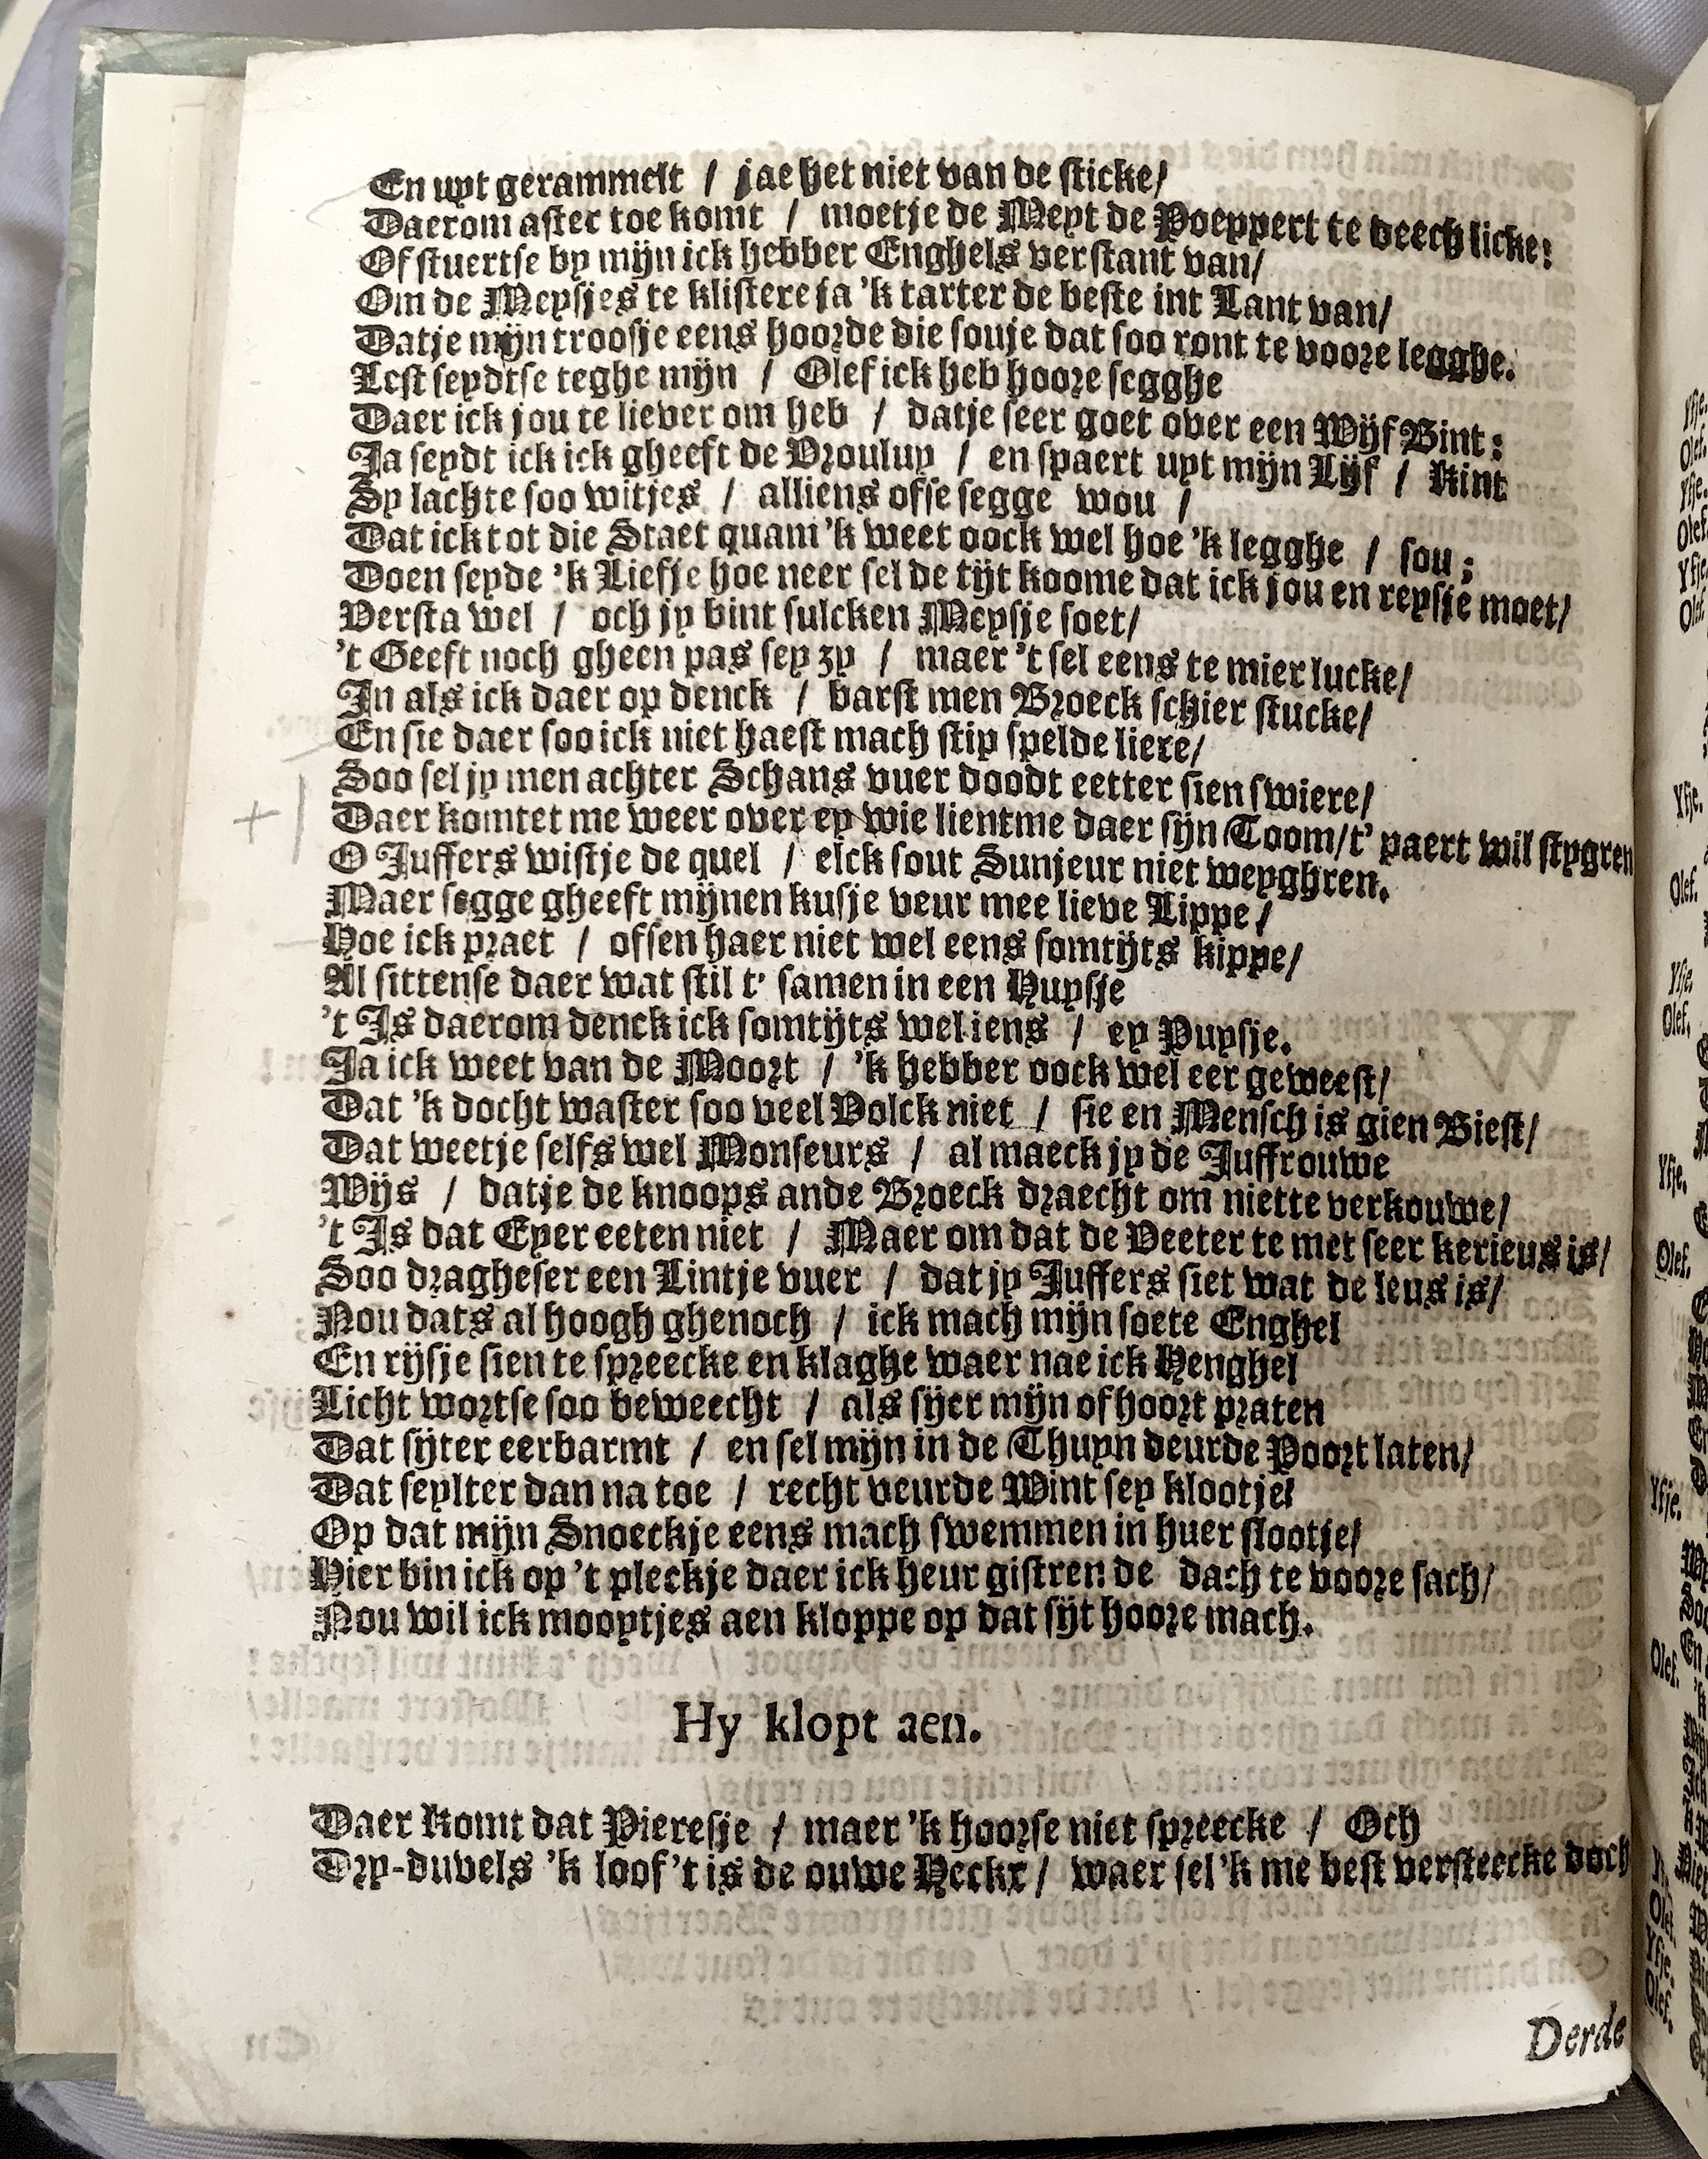 En uyt gerammelt / jae het niet van de sticke/
Daerom after toe komt / moetje de Meyt de Poeppert te deech licke:
Of stuertse by mijn ick hebber Enghels verstant van/
Om de Meysjes te klistere ja 'k tarter de beste int Lant van/
Datje mijn troosje eens hoorde die souje dat soo ront te voore legghe.
Lest seydtse teghe mijn / Olef ick heb hoore segghe
Daer ick jou te liever om heb / datje seer goet over een Wijf Bint:
Ja seydt ick ick gheeft de Vrouluy / en spaert uyt mijn Lijf / Kint
Sy lachte soo witjes / alliens ofse segge wou /
Dat ick tot die Staet quam 'k weet oock wel hoe 'k legghe / sou ;
Doen seyde 'k Liefje hoe neer sel de tijt koome dat ick jou en reysje moet/
Versta wel / och jy bint sulcken Meysje soet/
't Geeft noch gheen pas sey zy / maer 't sel eens te mier lucke/
In als ick daer op denck / barst men Broeck schier stucke/
En sie daer soo ick niet haest mach stip spelde liere/
Soo sel jy men achter Schans vuer doodt eetter sien swiere/
Daer komtet me weer over ey wie lientme daer sijn Toom/t' paert wil stygren
O Juffers wistje de quel / elck sout Sunjeur niet weyghren.
Maer segge gheeft mijnen kusje veur mee lieve Lippe/
Hoe ick praet / ofsen haer niet wel eens somtijts kippe/
Al sittense daer wat stil t' samen in een Huysje
't Is daerom denck ick somtijts wel iens / ey Puysje.
Ja ick weet van de Moort / 'k hebber oock wel eer geweest/
Dat 'k docht waster soo veel Volck niet / sie en Mensch is gien Biest/
Dat weetje selfs wel Monseurs / al maeck jy de Juffrouwe
Wijs / datje de knoops ande Broeck draecht om niette verkouwe/
't Is dat Eyer eeten niet / Maer om dat de Veeter te met seer kerieus is/
Soo dragheser een Lintje vuer / dat jy Juffers siet wat de leus is/
Nou dats al hoogh ghenoch / ick mach mijn soete Enghel
En rijsje sien te spreecke en klaghe waer nae ick Henghel
Licht wortse soo beweecht / als sijer mijn of hoort praten
Dat sijter eerbarmt / en sel mijn in de Thuyn deurde Poort laten/
Dat seylter dan na toe / recht veurde Wint sey klootje/
Op dat mijn Snoeckje eens mach swemmen in huer slootje/
Hier bin ick op 't pleckje daer ick heur gistren de dach te voore sach/
Nou wil ick mooytjes aen kloppe op dat sijt hoore mach.
Hy klopt aen.
Daer komt dat Pieresje / maer 'k hoorse niet spreecke / Och
Dry-duvels 'k loof 't is de ouwe Heckx / waer sel 'k me best versteecke doch
Derde